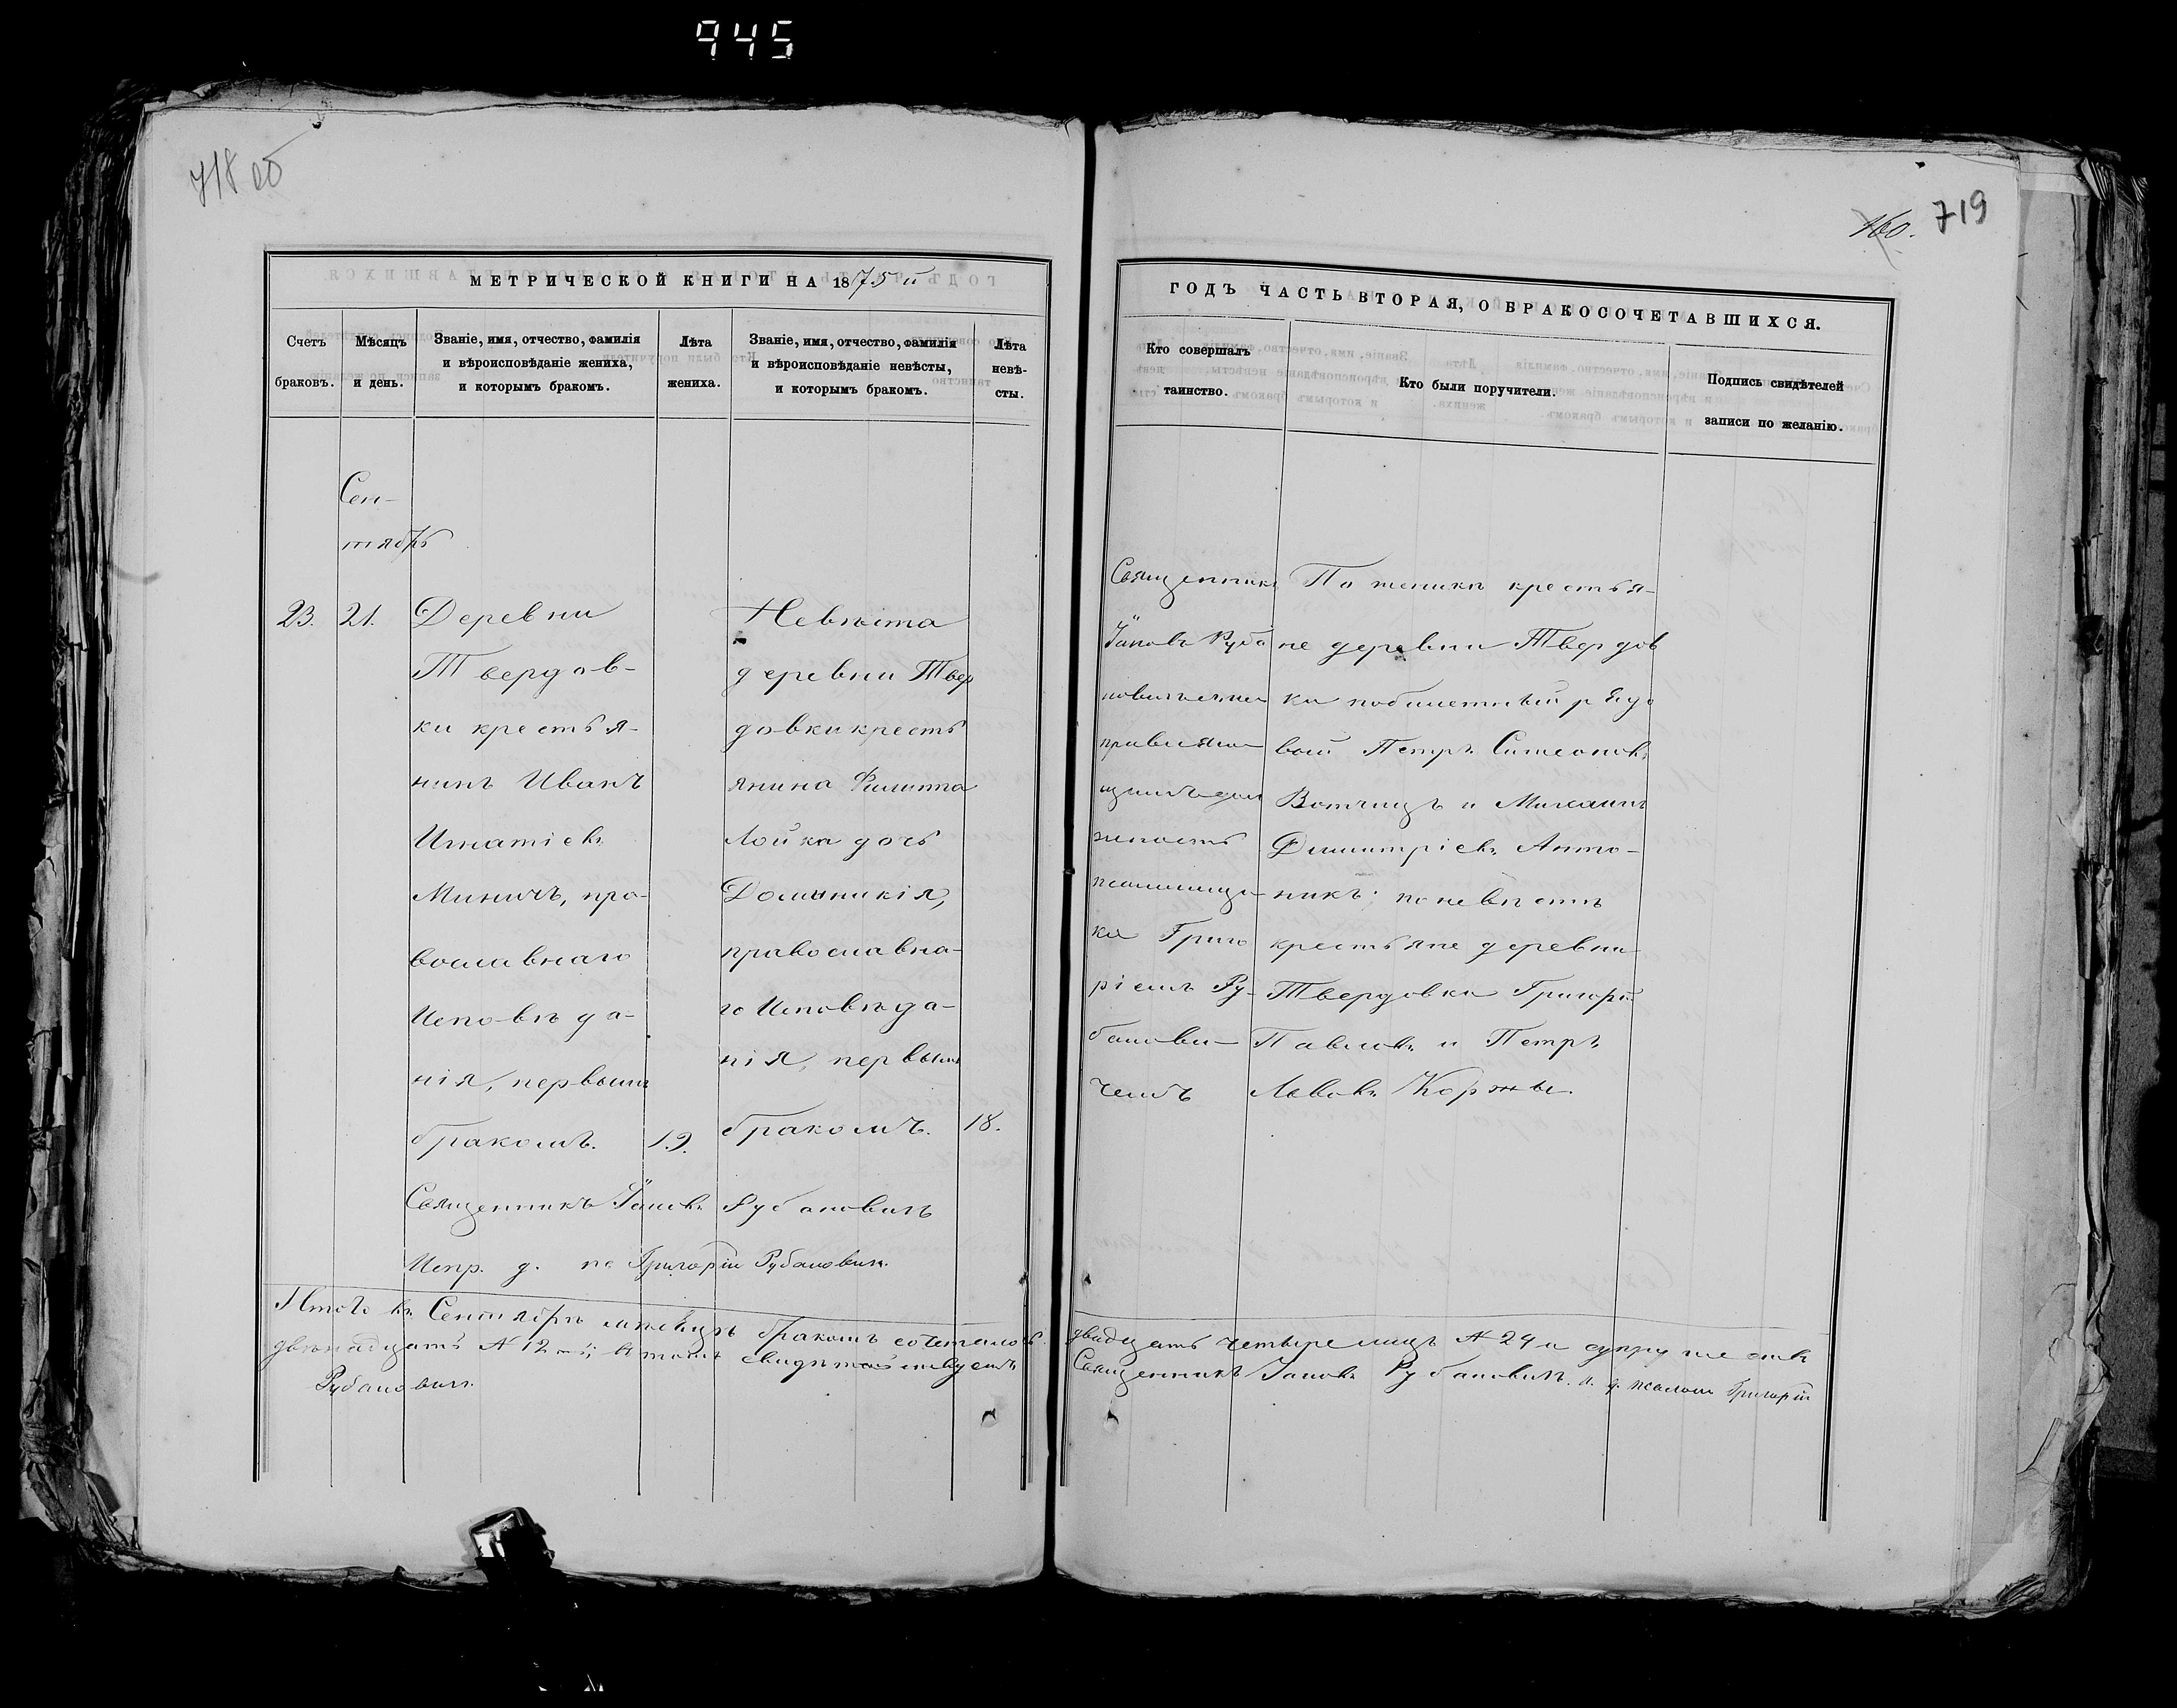 945
718 об
МЕТРИЧЕСКОЙ КНИГИ НА 1875й
Счетъ браковъ.
Мѣсяцъ и день.
Званіе, имя, отчество, фамилія и вѣроисповѣданіе жениха, и которымъ бракомъ.
Лѣта жениха.
Званіе, имя, отчество, фамилія и вѣроисповѣданіе невѣсты, и которымъ бракомъ.
Лѣта невѣ-сты.
Сен-
тябрь
23.
21.
Деревни
Твердов-
ки крестья-
нинъ Иванъ
Игнатіевъ
Миничъ, пра-
вославнаго
Исповѣда-
нія, первымъ
бракомъ.
19.
Невѣста
деревни Твер
довки кресть
янина Филиппа
Лойка дочь
Домникія,
православна-
го Исповѣда-
нія, первымъ
бракомъ.
18.
Священникъ Іаковъ Рубановичъ
Испр. д. пс Григорій Рубановичъ.
Итого въ Сентябрѣ мѣсяцѣ бракомъ сочеталось
двѣнадцать № 12 въ томъ свидѣтельствуемъ
Рубановичъ.
160. 719
ГОДЪ ЧАСТЬ ВТОРАЯ, О БРАКОСОЧЕТАВШИХСЯ.
Кто совершалъ таинство.
Кто были поручители.
Подпись свидѣтелей записи по желанію.
Священникъ
Іаковъ Руба
новичъ
правляю-
щимъ дол
жность
псаломщи-
ка Григо
ріемъ Ру-
банови-
чемъ
По женихѣ крестья-
не деревни Твердов
ки побилетный рядо
вой Петръ Симеоновъ
и Михаилъ
Димитріевъ Анто-
никъ; по невѣстѣ
крестьяне деревни
Твердовки Григорій
Павловъ и Петръ
Львовъ Коржы.
двадцать четыре лицъ № 24 и супружествъ
Священникъ Іаковъ Рубановичъ. и. д. псалом Григорій